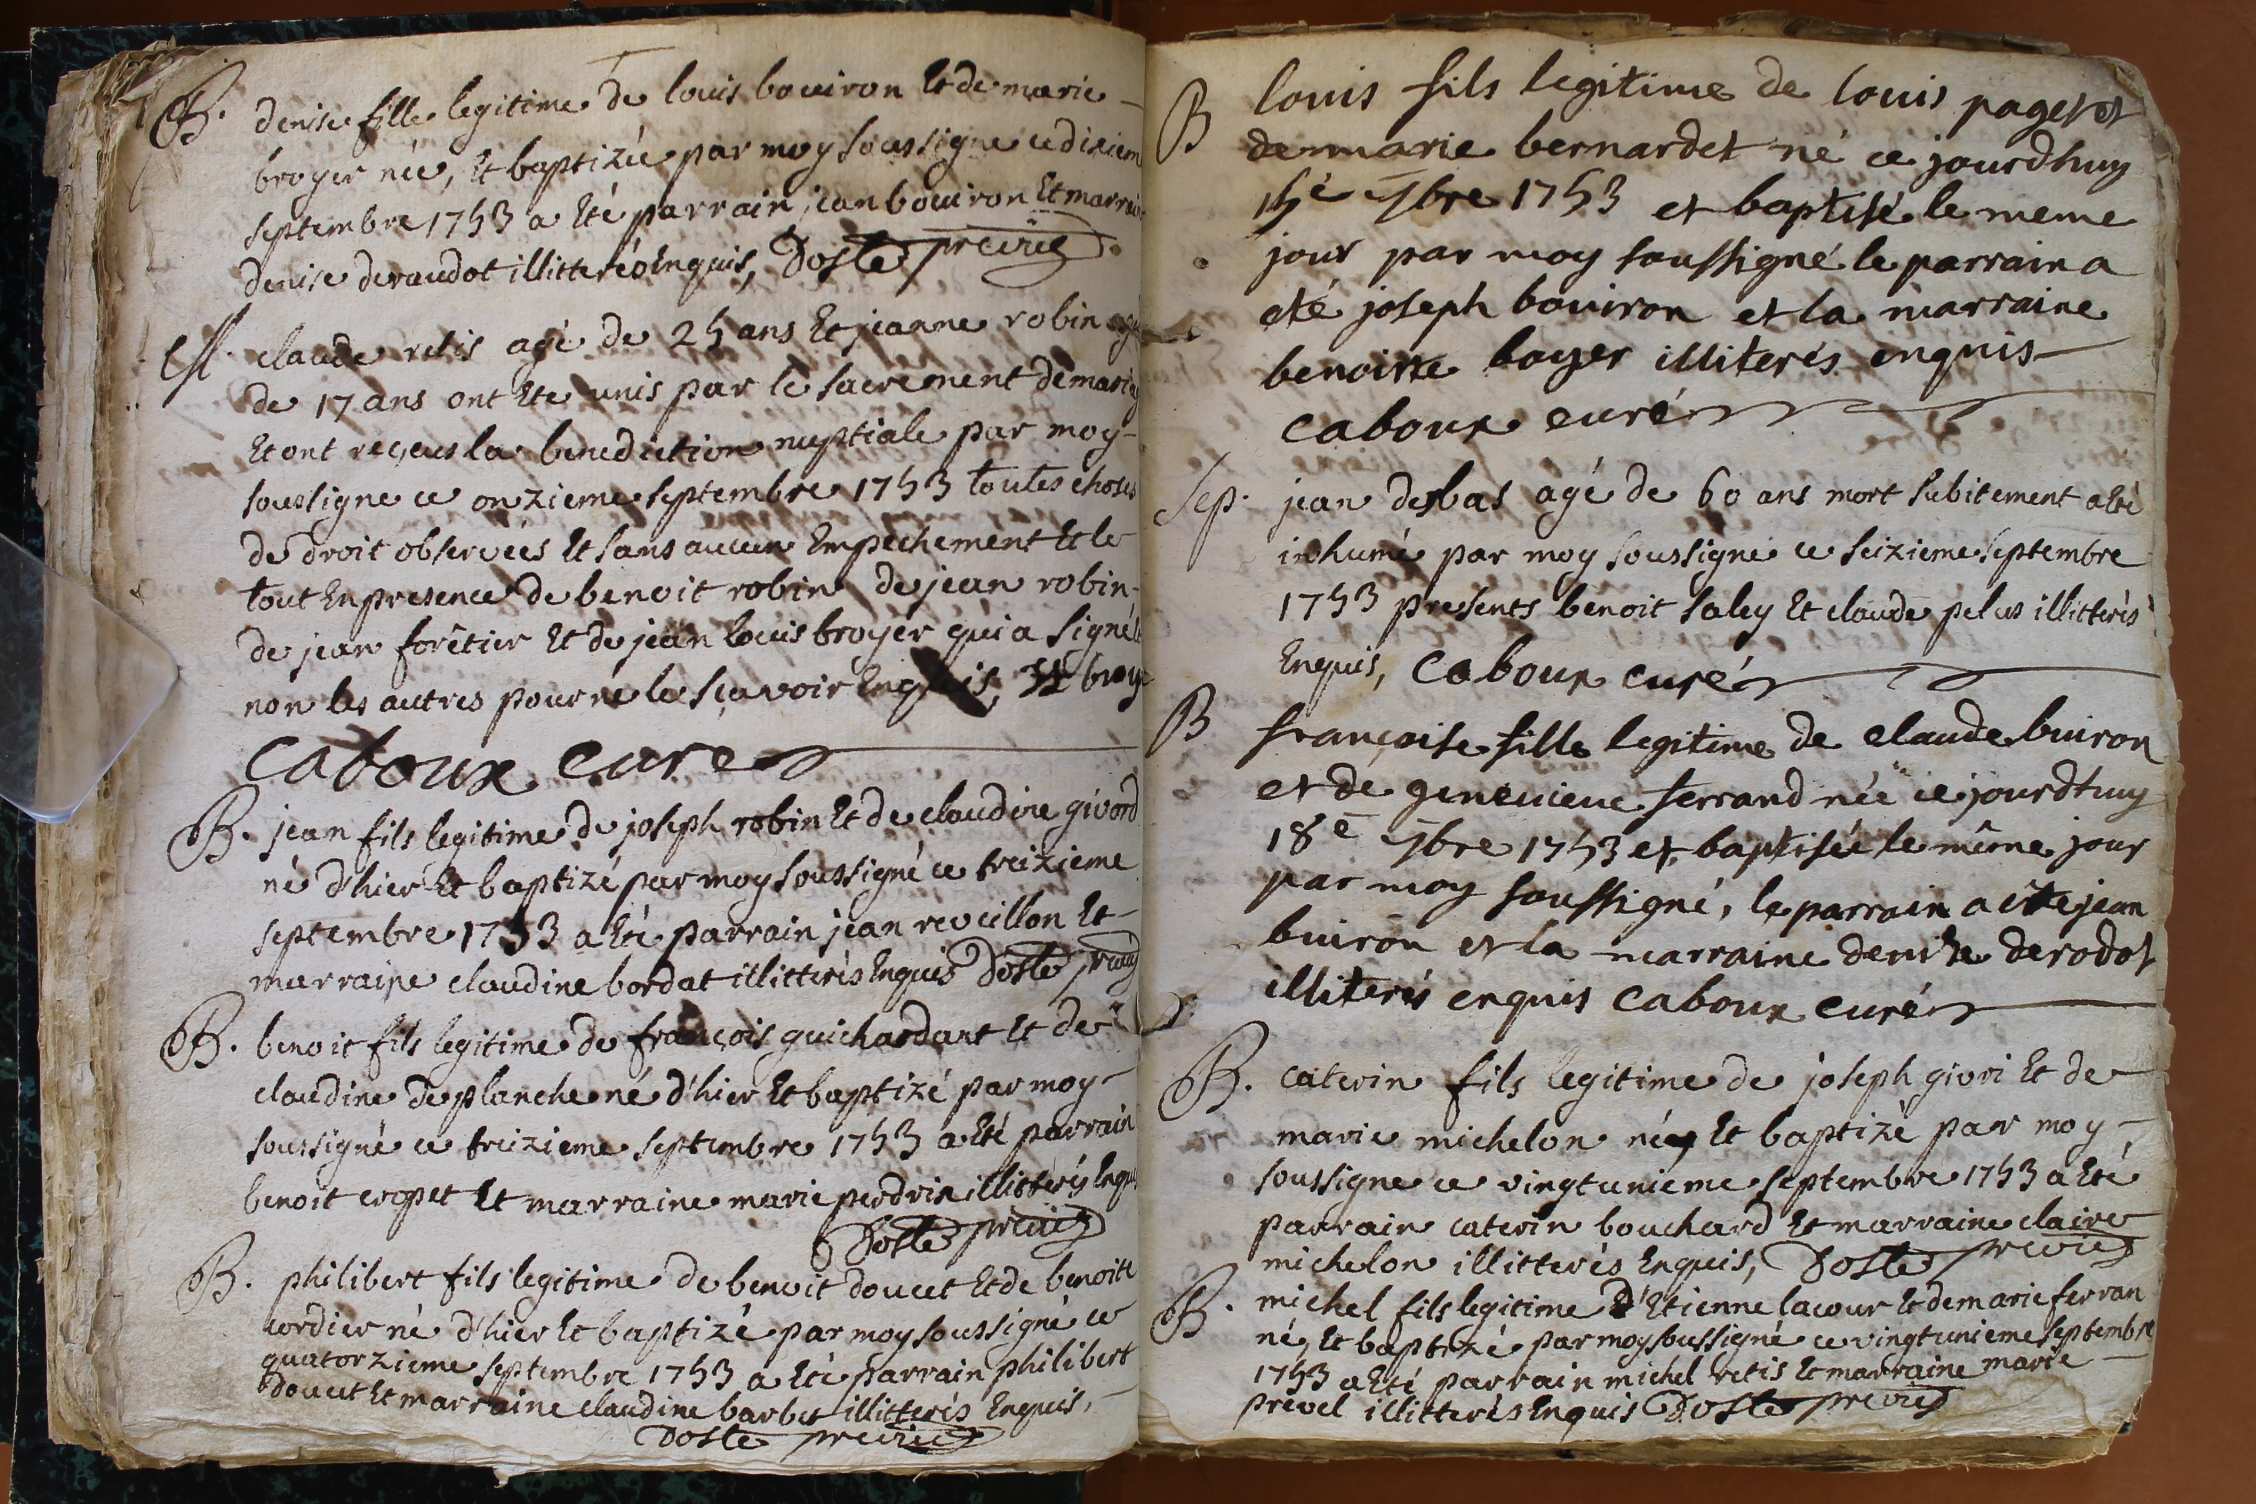 B. denise fille legitime de louis bouiron et de marie
broyer née, et baptizée par moy soussigné ce dixiem
septembre 1753 a été parrain jean bouiron et marrai
denise deraudot illitterés enquis, Doste
M. claude retis agé de 25 ans et jeanne robin
de 17 ans ont été unis par le sacrement de mariag
et ont reçeus la benediction nuptiale par moy
soussigné ce onzieme septembre 1753 toutes choses
de droit observées et sans aucun empechement et le
tout en presence de benoit robin de jean robin
de jean forêtier et de jean louis broyer qui a signé
non les autres pour ne le sçavoir enquis, broye
caboux curé
B. jean fils legitime de joseph robin et de claudine givord
né d'hier et baptizé par moy soussigné ce treizieme
septembre 1753 a été parrain jean reveillon et
marraine claudine bordat illitterés enquis Doste
B. benoit fils legitime de françois guichardant et de
claudine deplanche né d'hier et baptizé par moy
soussigné ce treizieme septembre 1753 a été parrain
benoit cropet et marraine marie perdrix illitterés enqu
Doste
B. philibert fils legitime de benoit doucet et de benoite
cordier né d'hier et baptizé par moy soussigné ce
quatorzieme septembre 1753 a été parrain philibert
doucet et marraine claudine barbet illitterés enquis,
Doste
B louis fils legitime de louis paget et
de marie bernardet né ce jourdhuy
15e 7bre 1753 et baptisé le meme
jour par moy soussigné le parrain a
eté joseph bouiron et la marraine
benoitte boyer illiterés enquis
caboux curé
Sep. jean desbas agé de 60 ans mort subitement a été
inhumé par moy soussigné ce seizieme septembre
1753 presents benoit saley et claude pelus illitterés
enquis, caboux curé
B françoise fille legitime de claude buiron
et de genevieve ferrand née ce jourdhuy
18e 7bre 1753 et baptisée le même jour
par moy soussigné, le parrain a été jean
buiron et la marraine denise derodot
illiterés enquis caboux curé
B. caterin fils legitime de joseph givri et de
marie michelon né, et baptizé par moy
soussigné ce vingtunieme septembre 1753 a été
parrain caterin bouchard et marraine claire
michelon illitterés enquis, Doste
B. michel fils legitime d'etienne lacour et de marie ferran
né, et baptizé par moy soussigné ce vingtunieme septembre
1753 a été parrain michel retis et marraine marie
prevel illitterés enquis Doste